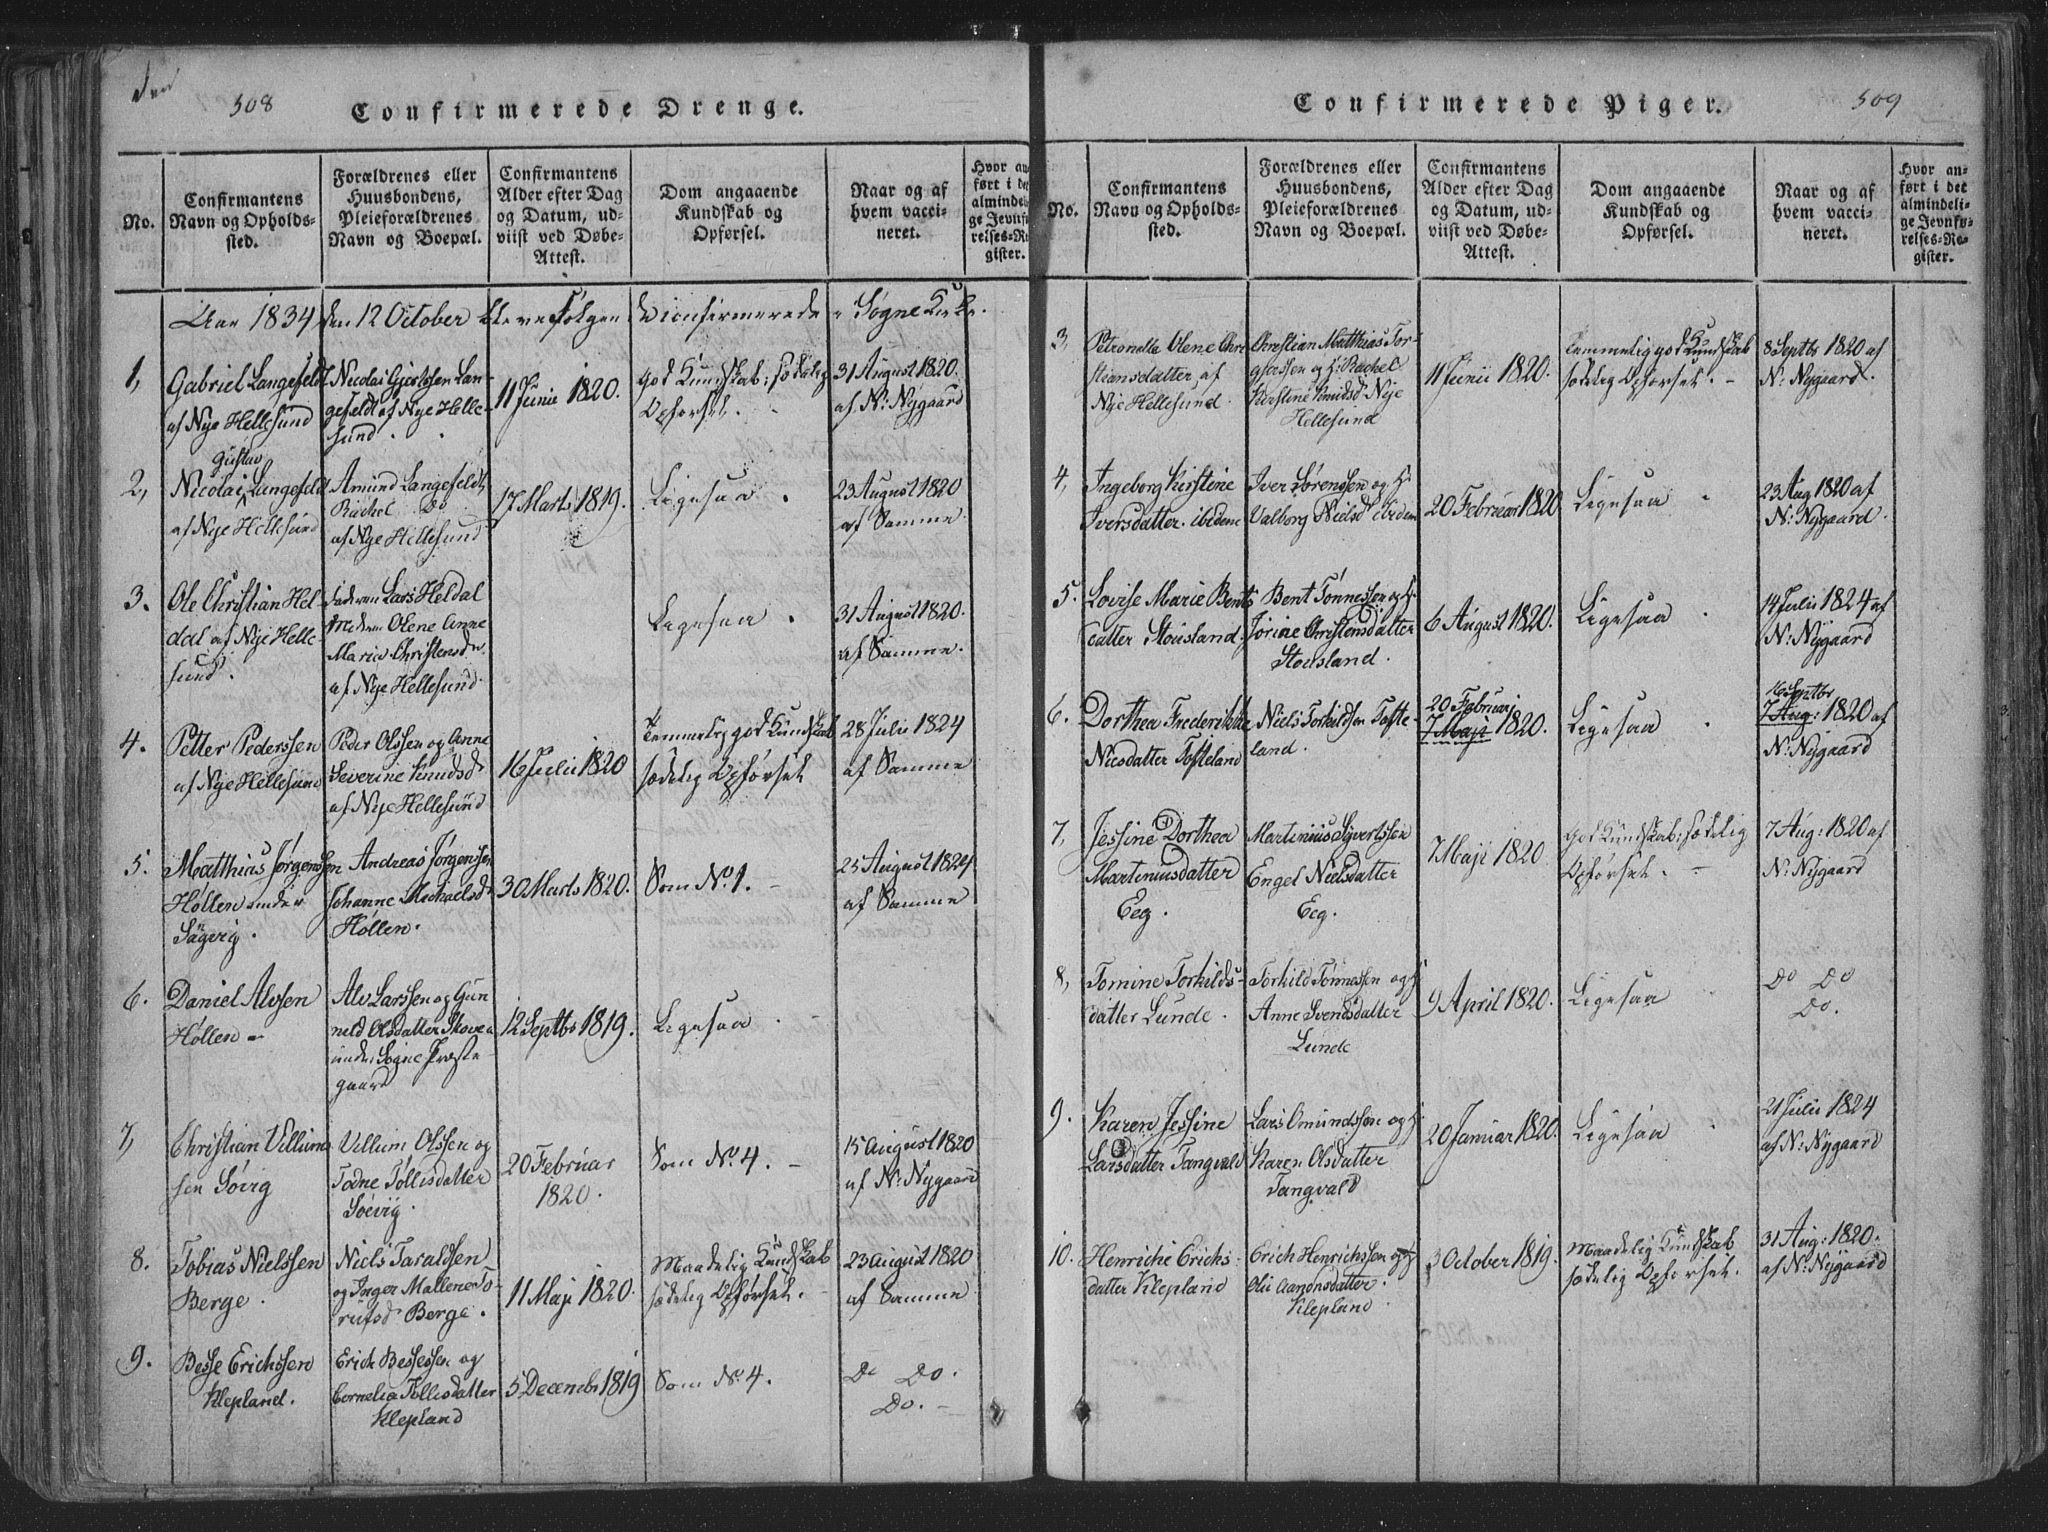 den
508
Confirmerede Drenge.
No.
Confirmantens
Navn og Opholds-
sted.
Forældrenes eller
Huusbondens,
Pleieforældrenes
Navn og Boepæl.
Confirmantens
Alder efter Dag
og Datum, ud-
viist ved Døbe-
Attest.
Dom angaaende
Kundskab og
Opførsel.
Naar og af
hvem vacci-
neret.
Hvor an
ført i de
almindeli
ge Jevnfø
relses-Re
gister.
Aar 1834 den 12 October bleve følgende confirmerede i Søgne Kirke.
1,
Gabriel Langefeldt
af Nye Hellesund
Nicolai Gjertssen Lan-
gefeldt af Nye Helle-
sund.
11 Junii 1820.
god Kundskab; sædelig
Opførsel.
31 August 1820.
af N: Nygaard
2,
Gustav
Nicolai Langefeldt
af Nye Hellesund
Amund Langefeldt,
Rachel Do
af Nye Hellesund
17 Marts 1819.
Ligesaa.
23 August 1820
af Samme.
3.
Ole Christian Hel-
dal af Nye Helle-
sund.
Faderen Lars Heldal
Moderen Olene Anne
Maria Christensd.
af Nye Hellesund.
Ligesaa.
31 August 1820.
af Samme.
4.
Petter Pederssen
af Nye Hellesund
Peder Olssen og Anne
Severine Knudsd
af Nye Hellesund
16 Julii 1820
Temmelig god Kundskab
sædelig Opførsel
28 Julii 1824
af Samme
5.
Matthias Jørgenssen
Høllen under
Søgvig.
Andreas Jørgenssen
Johanne Michaelsd
Høllen.
30 Marts 1820.
Som No. 1.
25 August 1824
af Samme
6.
Daniel Alvsen
Høllen
Alv Larssen og Gun
neld Olsdatter Skoven
under Sogne Præste-
gaard
12 Septbr 1819.
Ligesaa
7,
Christian Villum
sen Søvig
Villum Olssen og
Todne Tollisdatter
Søevig.
20 Februar
1820.
Som No. 4.
15 August 1820
af N: Nygaard
8.
Tobias Nielssen
Berge.
Niels Taraldsen
og Inger Mallene To-
rufsd Berge.
11 Maji 1820.
Maadelig Kundskab
sædelig Opførsel.
23 August 1820
af Samme
9.
Besse Erichssen
Klepland.
Erich Bessessen og
Cornelia Tollisdatter
Klepland
5 Decembr 1819
Som No. 4.
Do Do.
Do.
509
Confirmerede Piger.
No.
Confirmantens
Navn og Opholds-
sted.
Forældrenes eller
Huusbondens,
Pleieforældrenes
Navn og Boepæl.
Confirmantens
Alder efter Dag
og Datum, ud-
viist ved Døbe-
Attest.
Dom angaaende
Kundskab og
Opførsel.
Naar og af
hvem vacci-
neret.
Hvor an-
ført i det
almindeli-
ge Jevnfø-
relses-Re-
gister.
3,
Petronelle Olene Chri
stiansdatter, af
Nye Hellesund.
Christian Matthias Tor-
gjussen og H: Rachel
Kirstine Knudsd Nye
Hellesund
11 Junii 1820.
Temmelig god Kundskab
sædelig Opførsel.
8 Septbr 1820 af
N: Nygaard.
4,
Ingeborg Kirstine
Iversdatter. ibidem
Iver Sørenssen og H:
Valborg Nielsd ibidem
20 Februar 1820
Ligesaa
23 Aug 1820 af
N: Nygaard.
5.
Lovise Marie Bents
datter Stousland.
Bent Tønnessen og H:
Jorine Christensdatter
Stousland.
6 August 1820.
Ligesaa
14 Julii 1824 af
N: Nygaard
6.
Dorthea Frederikke
Nielsdatter Tofteland
Niels Torkildsen Tofte-
land.
20 Februar
7 Maji 1820.
Ligesaa
16 Septbr
7 Aug: 1820 af
N: Nygaard
7,
Jessine Dorthea
Martiniusdatter
Eeg.
Martinius Sivertssen
Engel Nielsdatter
Eeg.
7 Maji 1820.
God Kundskab; sædelig
Opførsel.
7 Aug: 1820 af
N: Nygaard
8,
Tomine Torkilds-
datter Lunde.
Torkild Tønnessen og H:
Anne Svendsdatter
Lunde
9 April 1820.
Ligesaa
Do Do
Do.
9.
Karen Jessine
Larsdatter Tangvald
Lars Omundssøn og H:
Karen Olsdatter
Tangvald
20 Januar 1820.
Ligesaa
21 Julii 1824
af N: Nygaard
10.
Henriche Erichs-
datter Klepland
Erich Henrichssen og H:
Oli Aandnsdatter.
Klepland
3 October 1819.
Maadelig Kundskab
sædelig Opførsel.
31 Aug: 1820.
af N: Nygaard